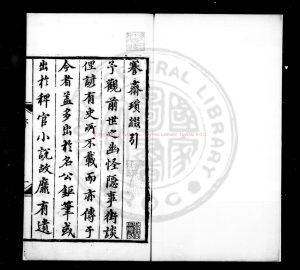 謇齋瑣綴引
予觀前世之幽怪隱事街談
俚諺有史所不載而亦傳于
今者蓋多出於名公鉅筆或
出於稗官小說故靡有遺